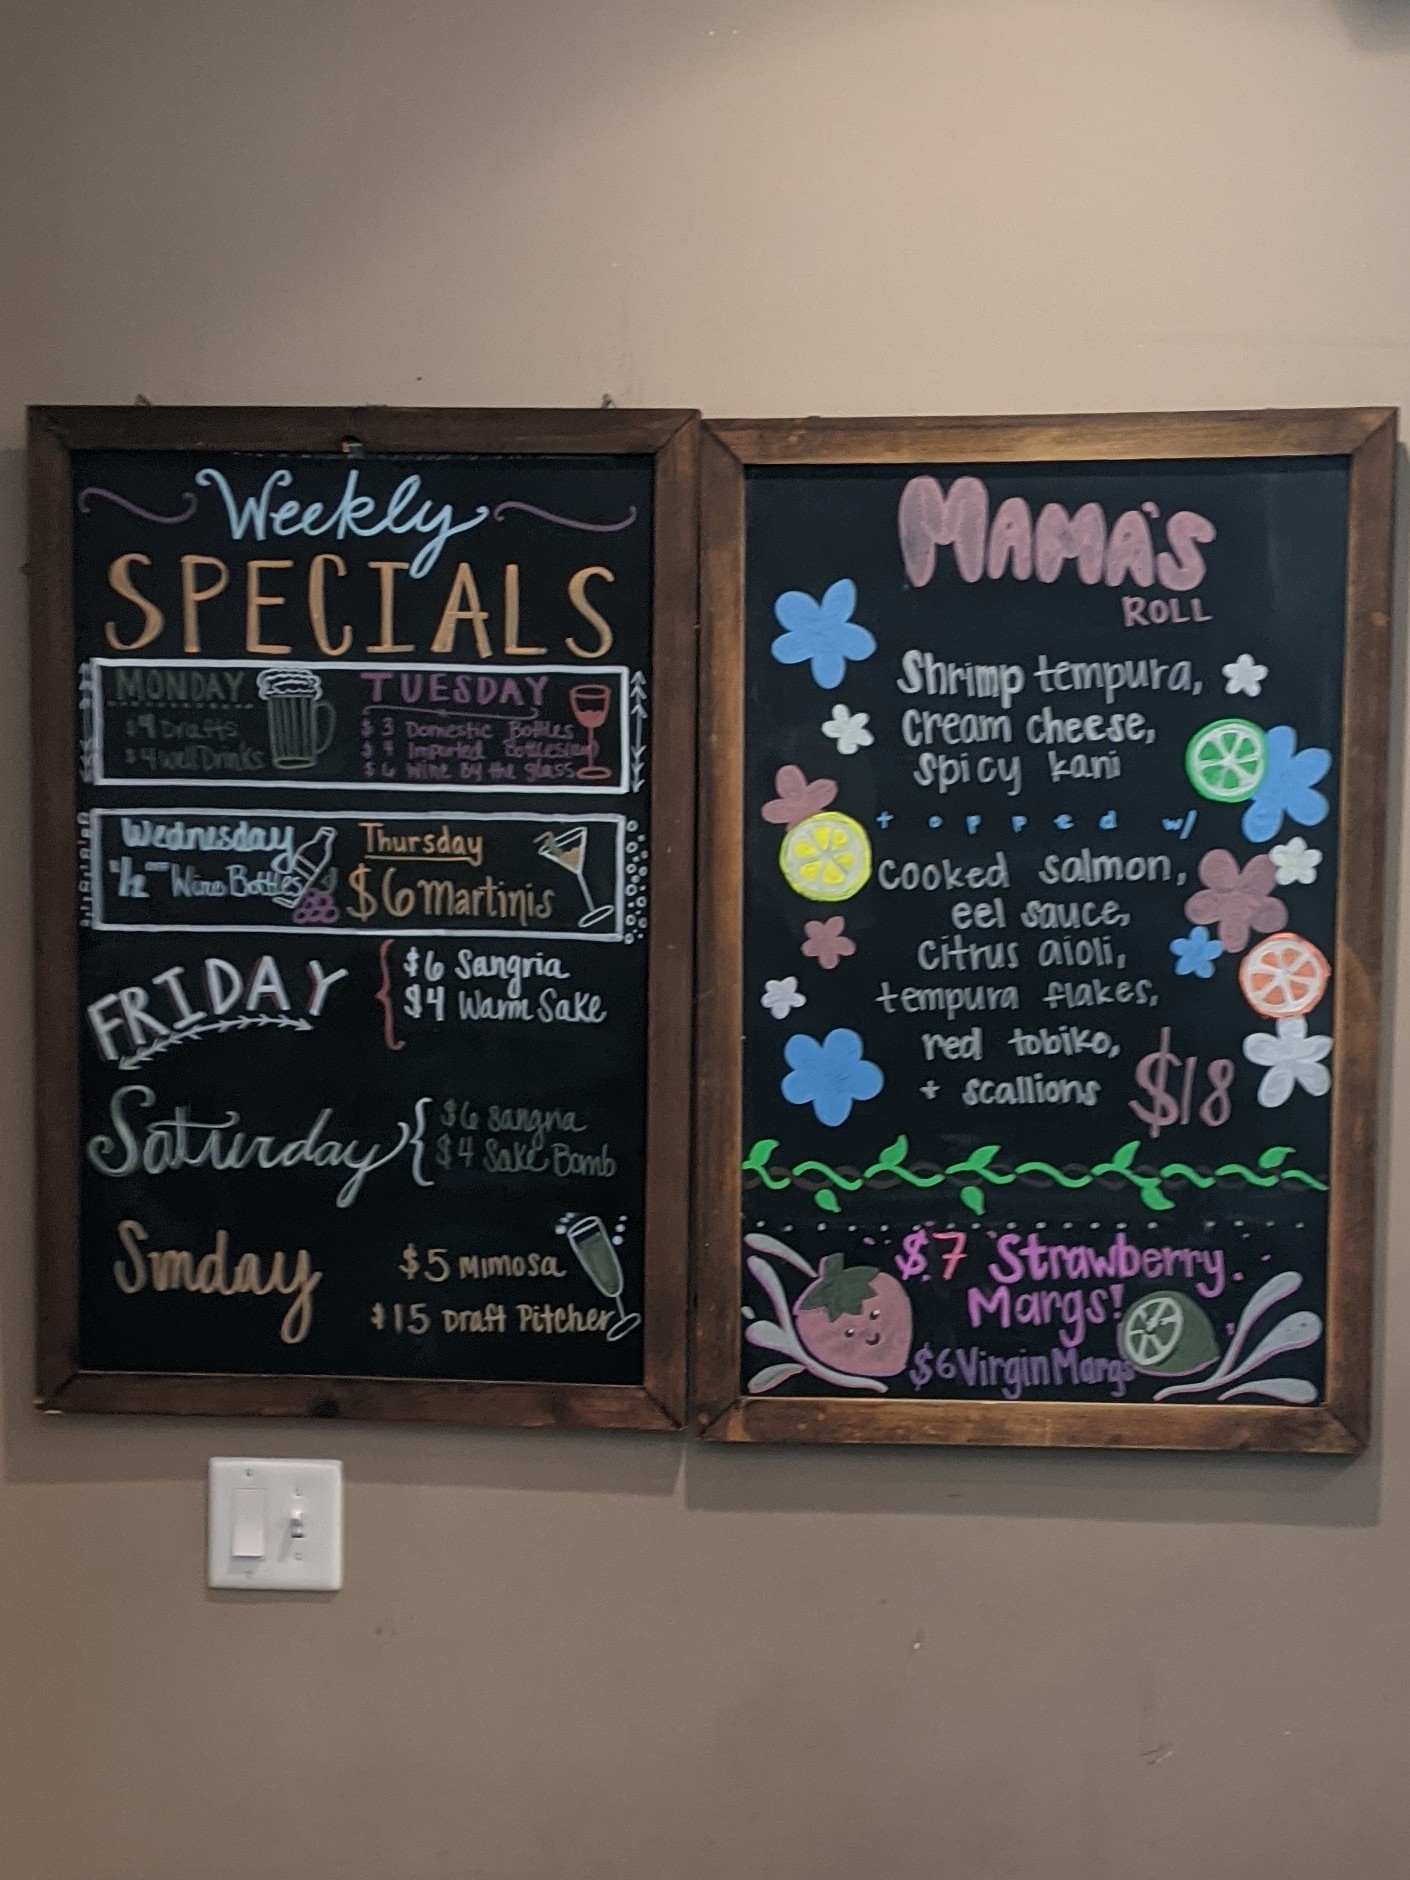 Weekly
SPECIALS
MONDAY
$4 Drafts
$4 well Drinks
TUESDAY
$3 Domestic Bottles
$4 Imported Bottles
$6 Wine By the glass
Wednesday
1/2 OFF Wine Bottles
Thursday
$6 Martinis
FRIDAY
$6 Sangria
$4 Warm Sake
Saturday
$6 Sangria
$4 Sake Bomb
Sunday
$5 Mimosa
$15 Draft Pitcher
MAMA'S
ROLL
Shrimp tempura,
cream cheese,
spicy kani
topped w/
cooked salmon,
eel sauce,
citrus aioli,
tempura flakes,
red tobiko,
+ scallions
$18
$7 Strawberry
Margs!
$6 Virgin Margs